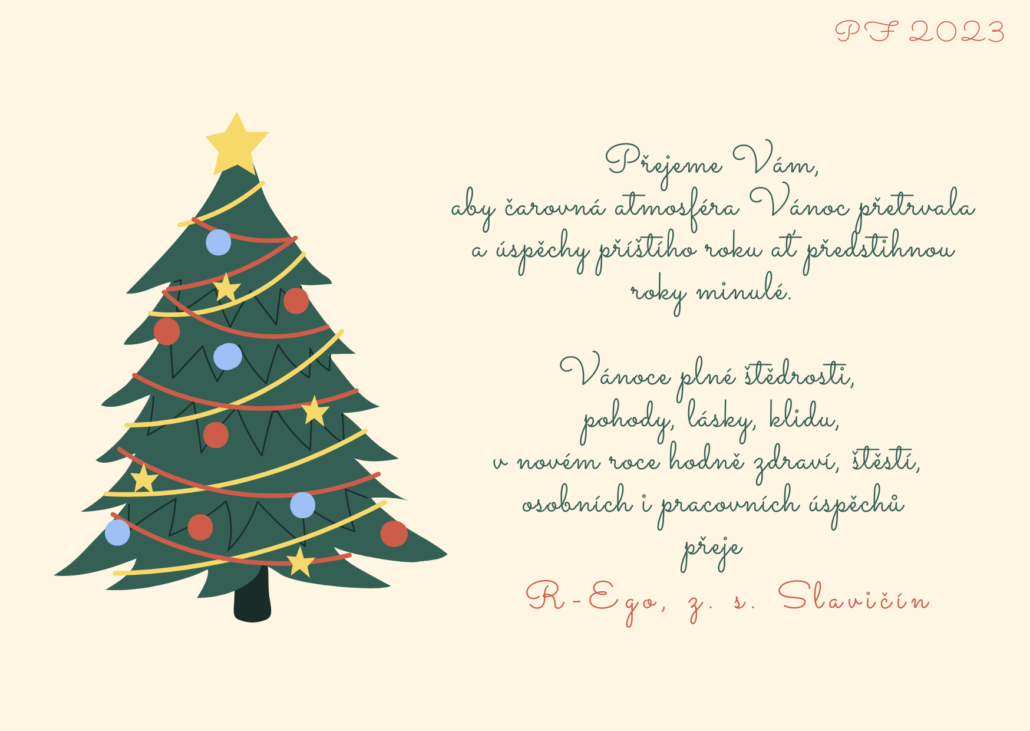 PF 2023
Přejeme Vám,
aby čarovná atmosféra Vánoc přetrvala
a úspěchy příštího roku ať předstihnou
roky minulé.
Vánoce plné štědrosti,
pohody, lásky, klidu,
v novém roce hodně zdraví, štěstí,
osobních i pracovních úspěchů
přeje
R-Ego, z. s. Slavičín